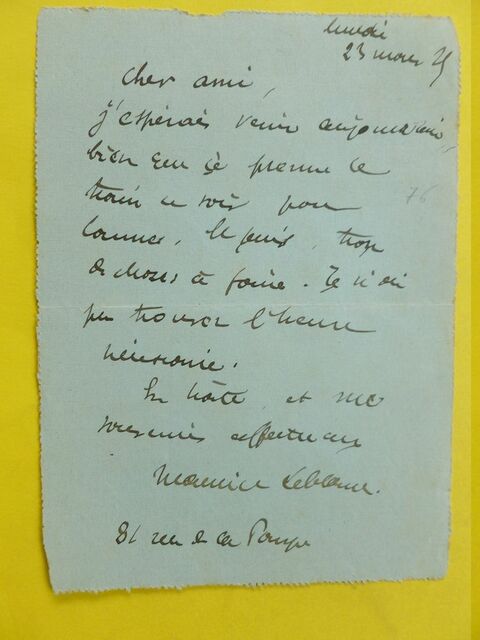 lundi
23 mars 25
Cher ami,
j'espérais venir aujourd'hui,
bien que je prenne le
train ce soir pour
76
Cannes. Et puis, trop
de choses à faire. Je n'ai
pu trouver l'heure
nécessaire.
En hâte, et mes
souvenirs affectueux
Maurice Leblanc.
81 rue de la Pompe